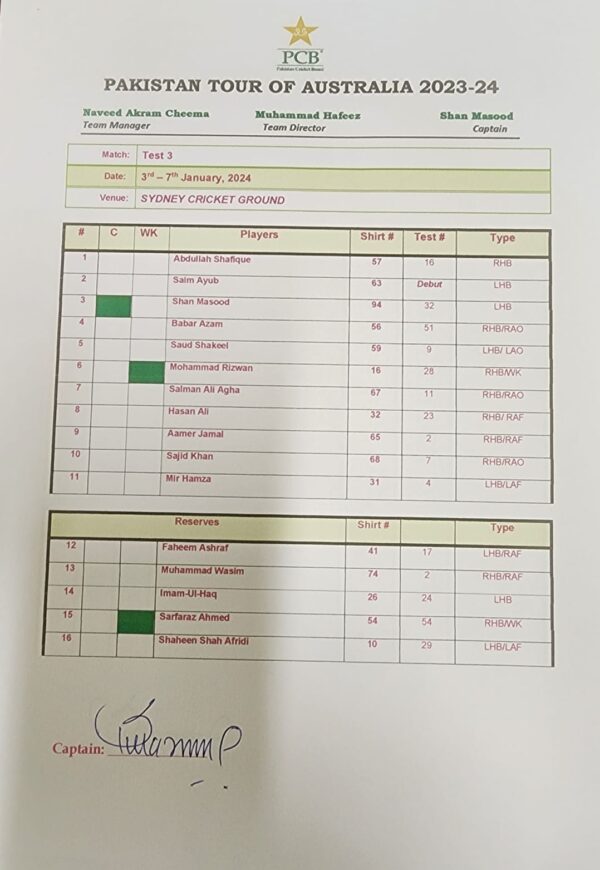 PCB
Pakistan Cricket Board
PAKISTAN TOUR OF AUSTRALIA 2023-24
Naveed Akram Cheema Muhammad Hafeez Shan Masood
Team Manager Team Director Captain
Match: Test 3
Date: 3rd – 7th January, 2024
Venue: SYDNEY CRICKET GROUND
# C WK Players Shirt # Test # Type
1 Abdullah Shafique 57 16 RHB
2 Saim Ayub 63 Debut LHB
3 Shan Masood 94 32 LHB
4 Babar Azam 56 51 RHB/RAO
5 Saud Shakeel 59 9 LHB/ LAO
6 Mohammad Rizwan 16 28 RHB/WK
7 Salman Ali Agha 67 11 RHB/RAO
8 Hasan Ali 32 23 RHB/ RAF
9 Aamer Jamal 65 2 RHB/RAF
10 Sajid Khan 68 7 RHB/RAO
11 Mir Hamza 31 4 LHB/LAF
Reserves Shirt # Type
12 Faheem Ashraf 41 17 LHB/RAF
13 Muhammad Wasim 74 2 RHB/RAF
14 Imam-Ul-Haq 26 24 LHB
15 Sarfaraz Ahmed 54 54 RHB/WK
16 Shaheen Shah Afridi 10 29 LHB/LAF
Captain: